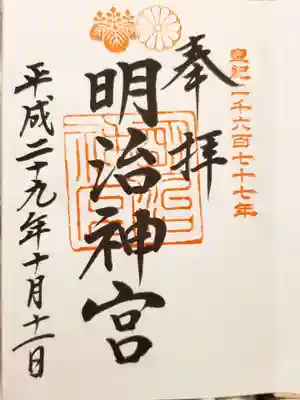 皇紀二千六百七十七年
奉拝
明治神宮
明治
神宮
平成二十九年十月十一日